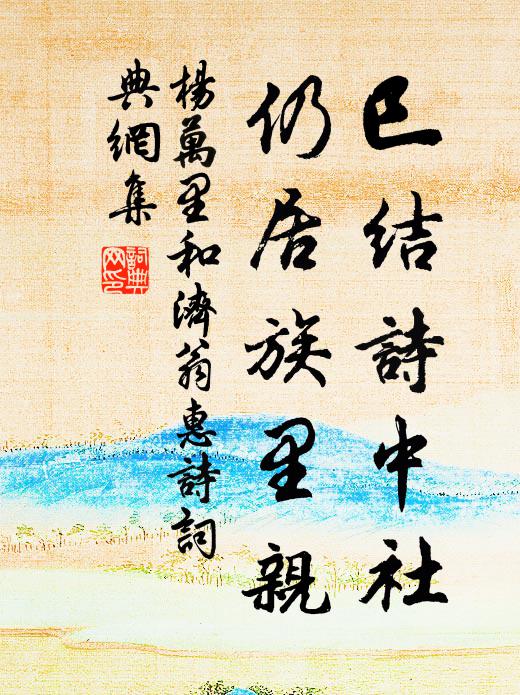 已結詩中社
仍居族里親
楊萬里和濟翁惠詩詞
典網集
詞典
网印